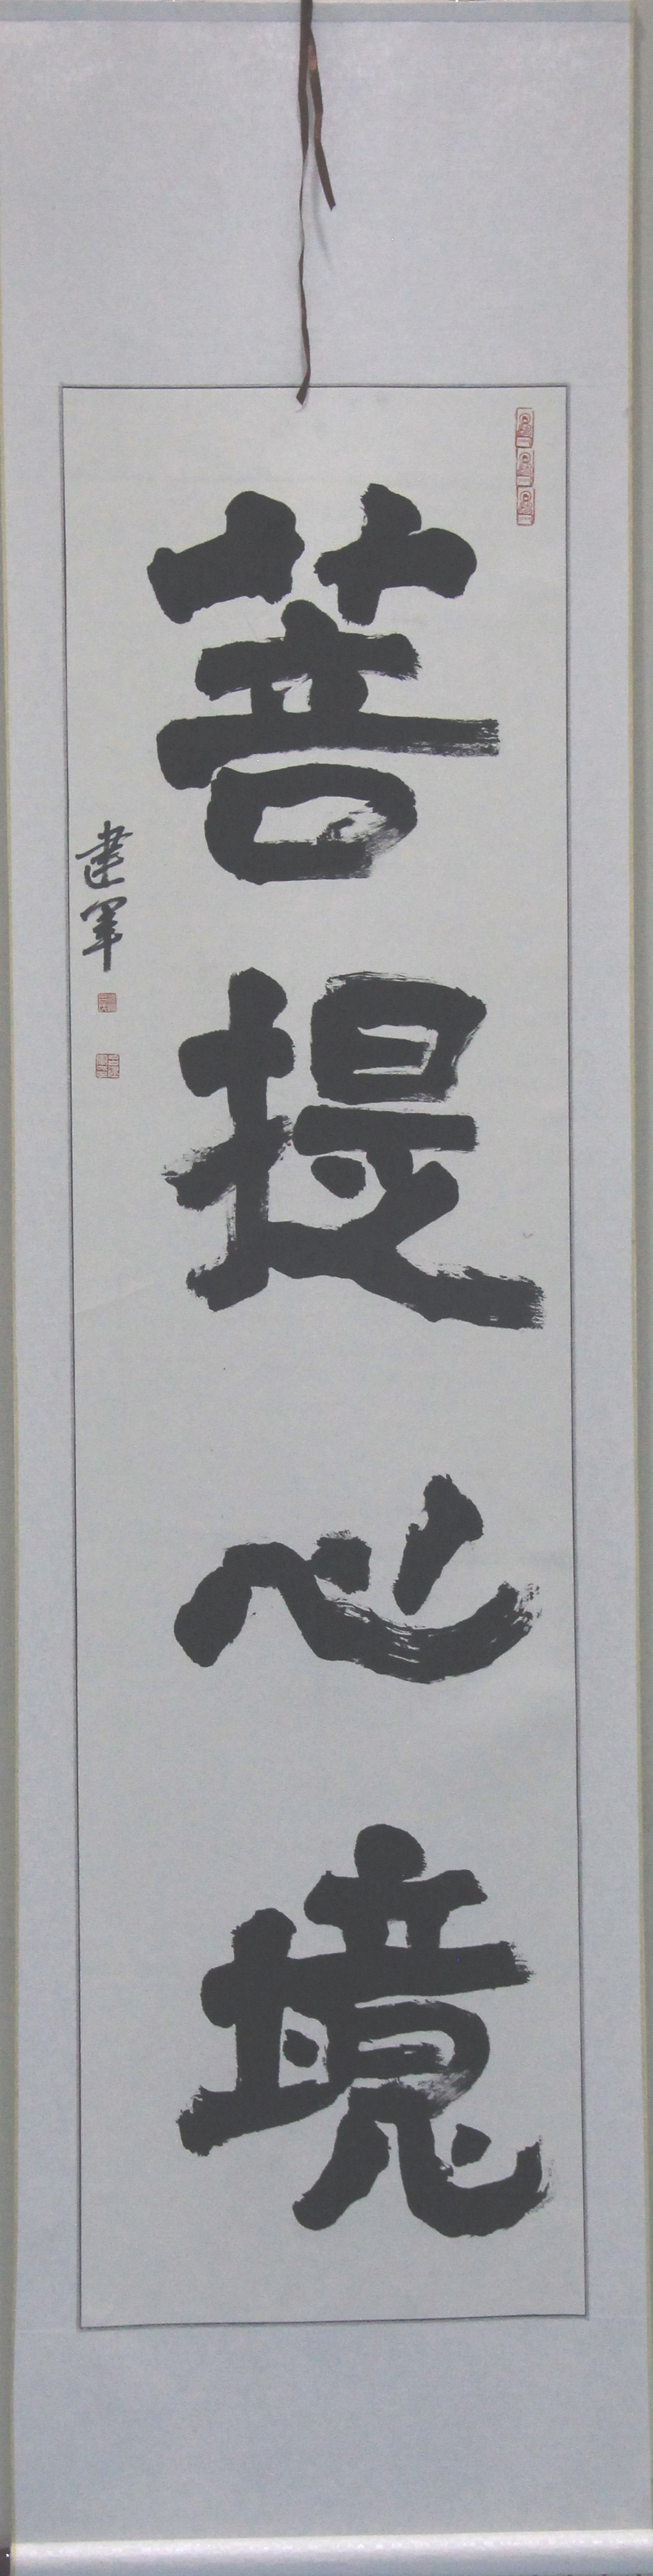 菩提心境
建軍